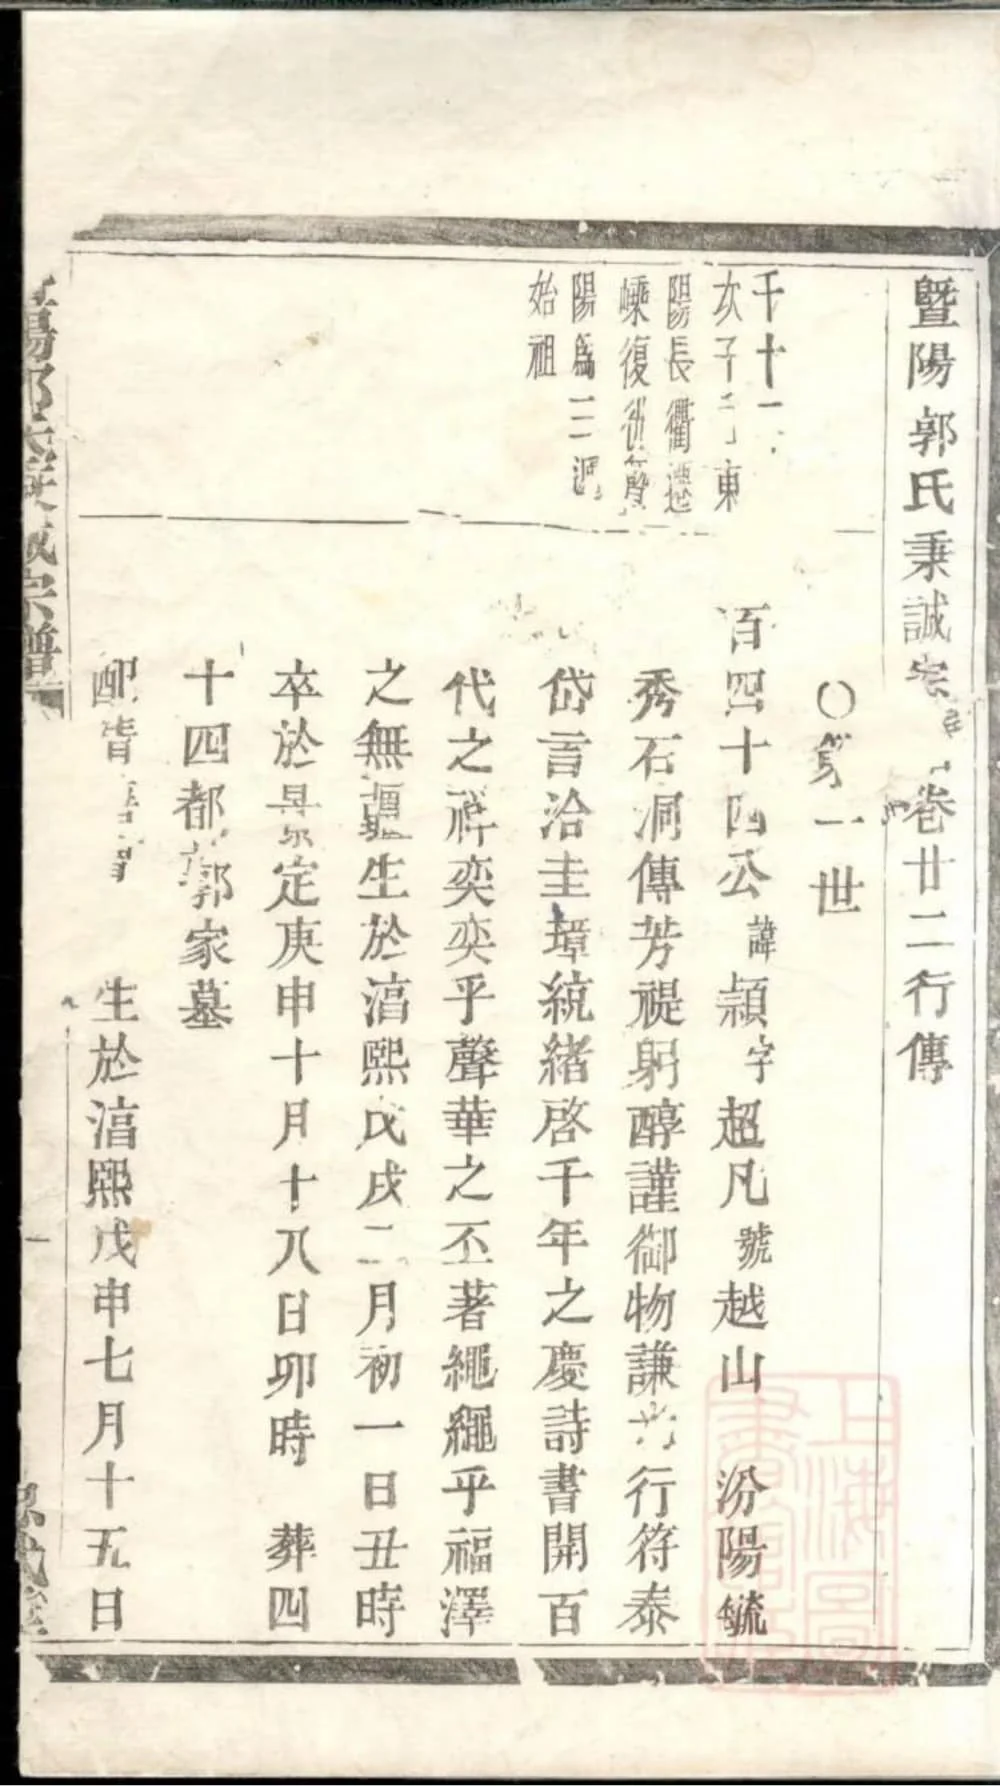 暨陽郭氏秉誠宗 卷廿二行傳
○第一世
千十一
次子 東
陽長衢遷
嵊復
陽為三
始祖
百四十四公諱頴字超凡號越山 汾陽毓
秀石洞傳芳禔躬醇謹御物謙 行符泰
岱言洽圭璋統緒啓千年之慶詩書開百
代之祥奕奕乎聲華之丕著繩繩乎福澤
之無疆生於淳熙戊戌二月初一日丑時
卒於景定庚申十月十八日卯時 葬四
十四都 郭家墓
配 生於淳熙戊申七月十五日
暨陽郭氏秉誠宗譜
一
上海圖書館藏